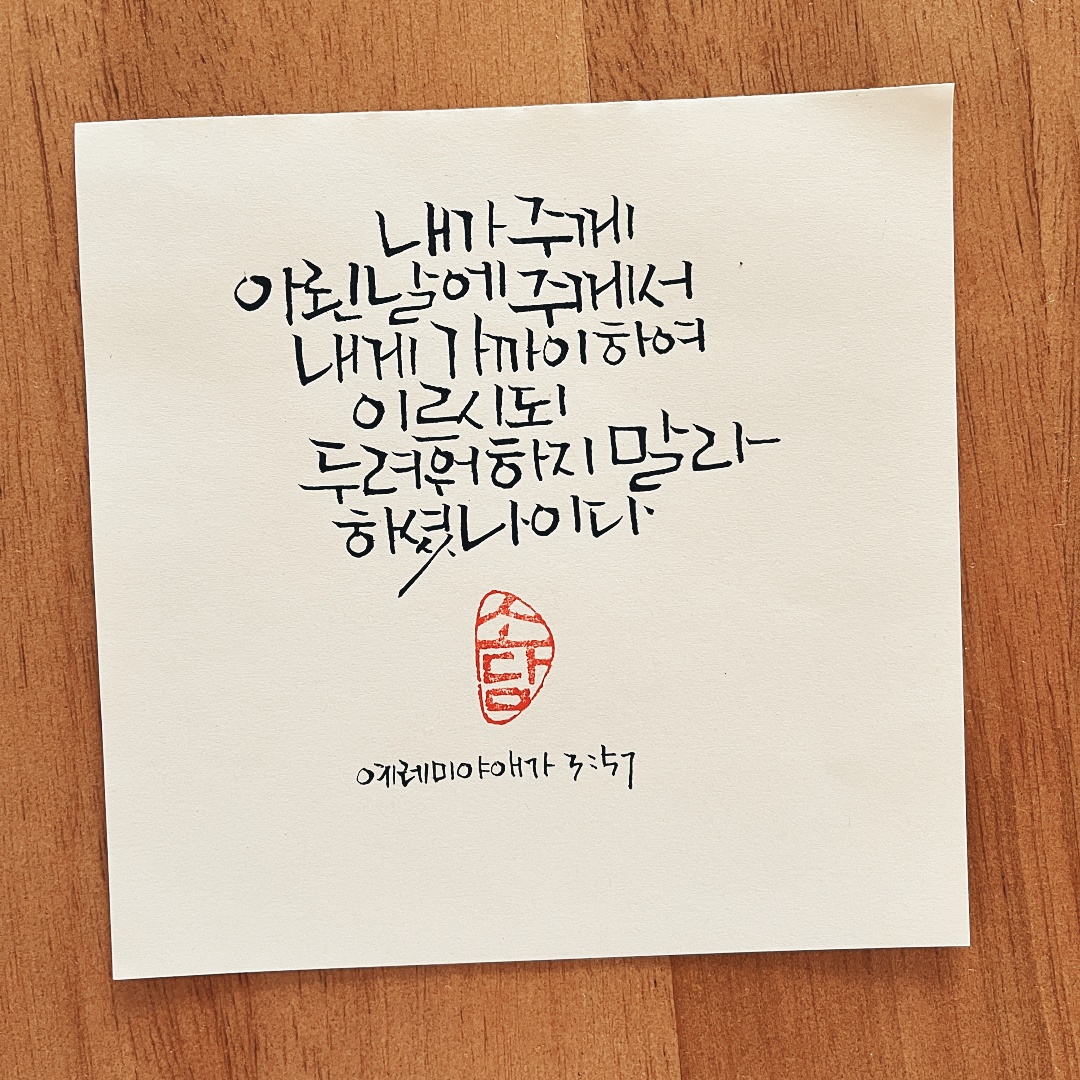 내가 주께
아뢴 날에 주께서
내게 가까이 하여
이르시되
두려워하지 말라
하셨나이다
소담
예레미야애가 3:57